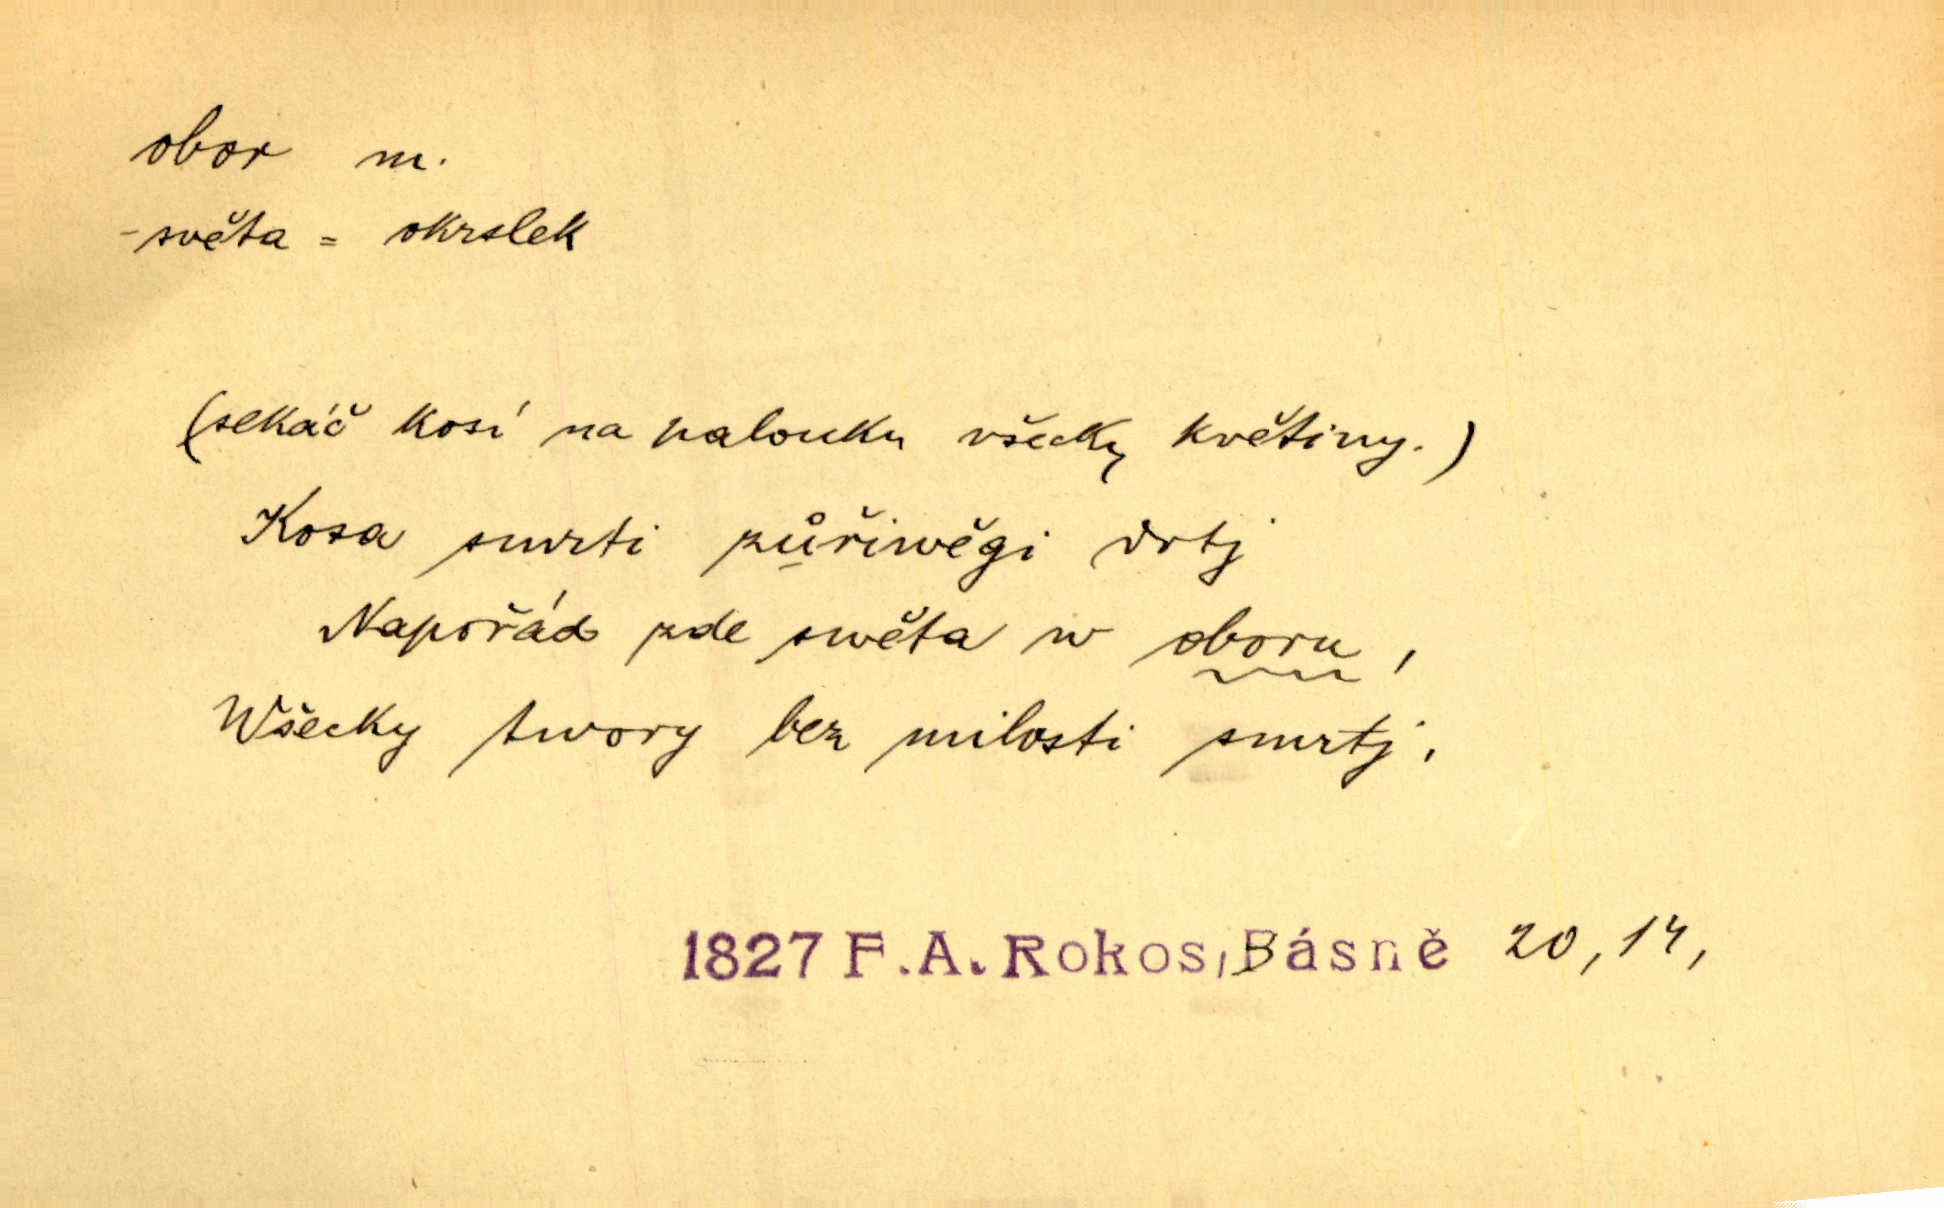 obor m.
- světa = okrslek
(sekáč kosí na palouku všecky květiny.)
Kosa smrti zůřiwěgi drtj
Napořád zde swěta w oboru,
Wšecky twory bez milosti smrtj,
1827 F.A. Rokos, Básně 20, 14,